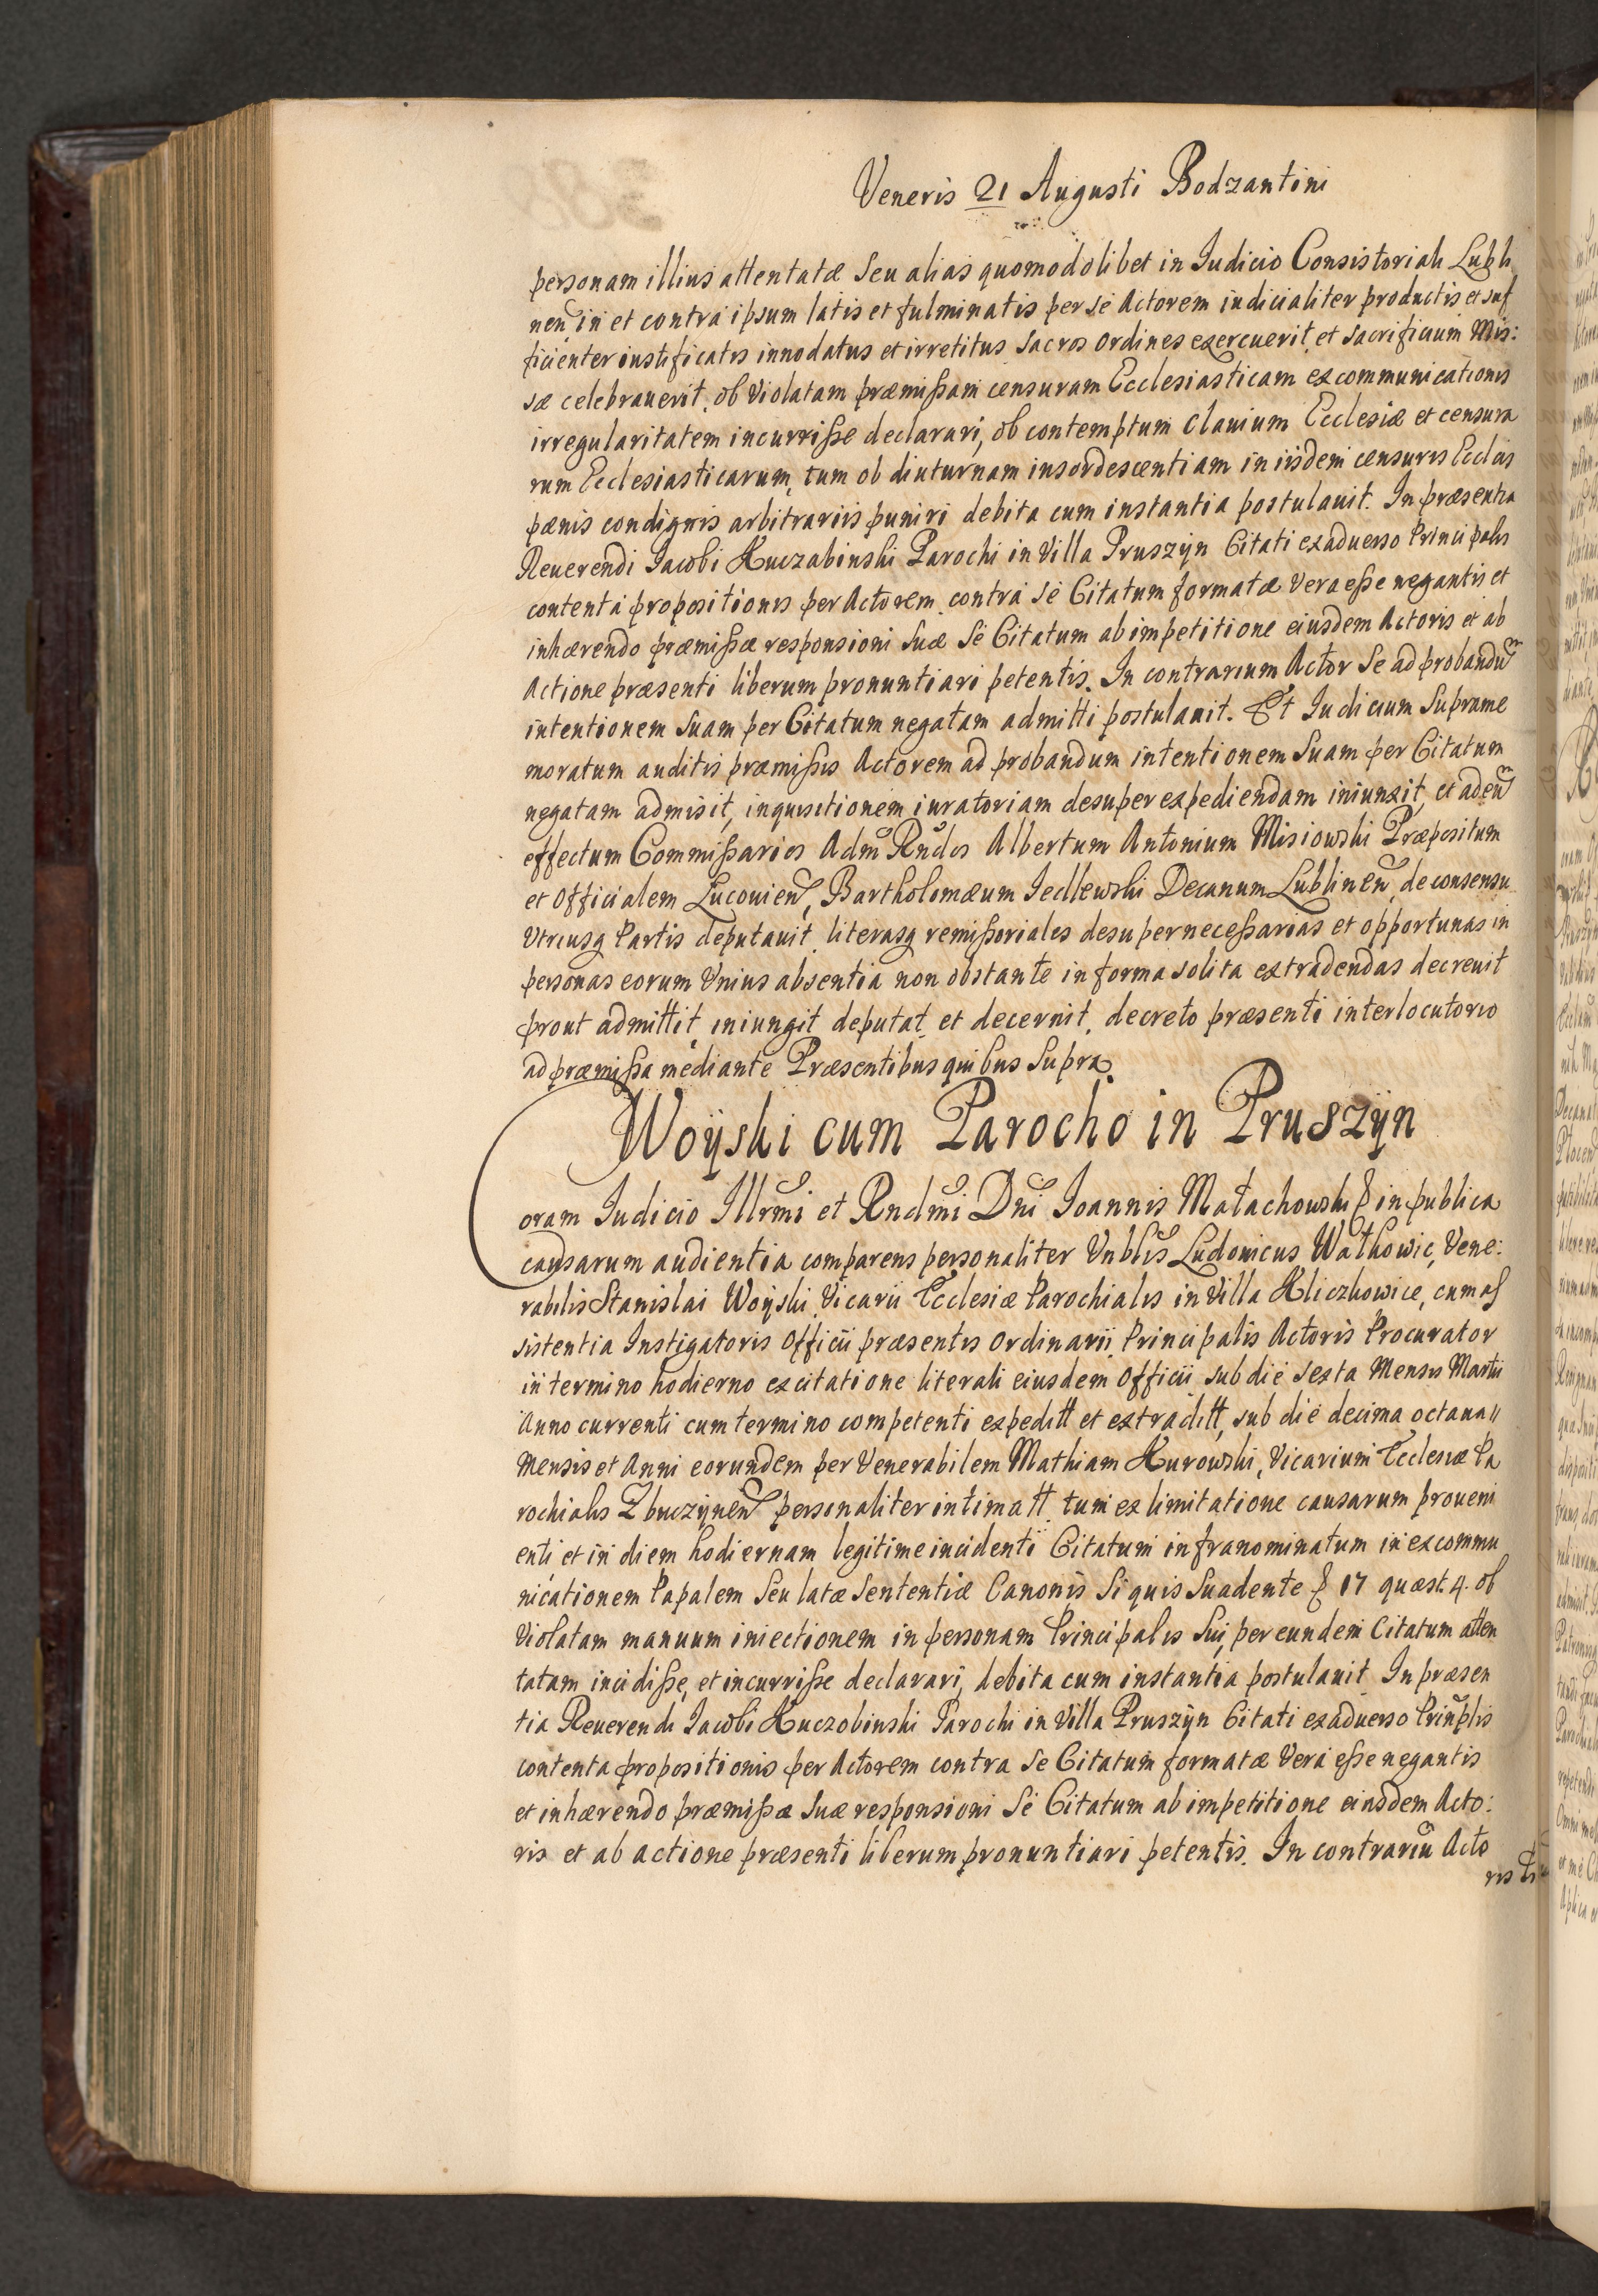 Veneris 21 Augusti Bodzantini
personam illius attentatæ seu alias quomodolibet in Iudicio Consistoriali Lubli
nen in et contra ipsum latis et fulminatis per se Actorem iudicialiter productis et suf
ficienter iustificatis innodatus et irretitus sacros ordines exercuerit et sacrificium Mis:
sæ celebrauerit, ob violatam præmißam censuram Ecclesiasticam excommunicationis
irregularitatem incurriße declarari, ob contemptum clauium Ecclesiæ et censura
rum Ecclesiasticarum, tum ob diuturnam insordescentiam in iisdem censuris Ecclcis
pænis condignis arbitrariis puniri debita cum instantia postulauit. In præsentia
Reuerendi Iacobi Kuczabinski Parochi in Villa Pruszÿn Citati ex aduerso Principalis
contenta propositionis per Actorem contra se Citatum formatæ vera eße negantis et
inhærendo præmißæ responsioni suæ se Citatum ab impetitione eiusdem Actoris et ab
Actione præsenti liberum pronuntiari petentis. In contrarium Actor se ad probandu
intentionem suam per Citatum negatam admitti postulauit. Et Iudicium Suprame
moratum auditis præmißis Actorem ad probandum intentionem suam per Citatum
negatam admisit, inquisitionem iuratoriam desuper expediendam iniunxit, et ad eu
effectum Commißarios Adm Rndos Albertum Antonium Misiowski Præpositum
et Officialem Lucouien, Bartholomæum Iedlewski Decanum Lublinen, de consensu
Vtriusq Partis deputauit literasq remißoriales desuper neceßarias et opportunas in
personas eorum Vnius absentia non obstante in forma solita extradendas decreuit
prout admittit iniungit deputat et decernit, decreto præsenti interlocutorio
ad præmißa mediante Præsentibus quibus supra
Woÿski cum Parocho in Pruszÿn
Coram Iudicio Illrmi et Rndmi Dni Ioannis Małachowski & in publica
causarum audientia comparens personaliter Vnblis Ludouicus Wałkowic, Vene:
rabilis Stanislai Woÿski Vicarii Ecclesiæ Parochialis in Villa Kliczkowice, cum as
sistentia Instigatoris Officii præsentis ordinarii Principalis Actoris Procurator
in termino hodierno ex citatione literali eiusdem Officii sub die sexta Mensis Martii
Anno currenti cum termino competenti expeditt et extraditt, sub die decima octaua
Mensis et Anni eorundem per Venerabilem Mathiam Kurowski, Vicarium Ecclesiæ Pa
rochialis Zbuczÿnen personaliter intimatt tum ex limitatione causarum proueni
enti et in diem hodiernam legitime incidenti Citatum infranominatum in excommu
nicationem Papalem seu latæ sententiæ Canonis Si quis suadente & 17 quæst. 4. ob
violatam manuum iniectionem in personam Principalis sui per eundem Citatum atten
tatam incidiße, et incurriße declarari, debita cum instantia postulauit In præsen
tia Reuerendi Iacobi Kuczobinski Parochi in Villa Pruszÿn Citati ex aduerso Prinplis
contenta propositionis per Actorem contra se Citatum formatæ vera eße negantis
et inhærendo præmißæ suæ responsioni se Citatum ab impetitione eiusdem Acto:
ris et ab actione præsenti liberum pronuntiari petentis. In contrariu Acto
ris